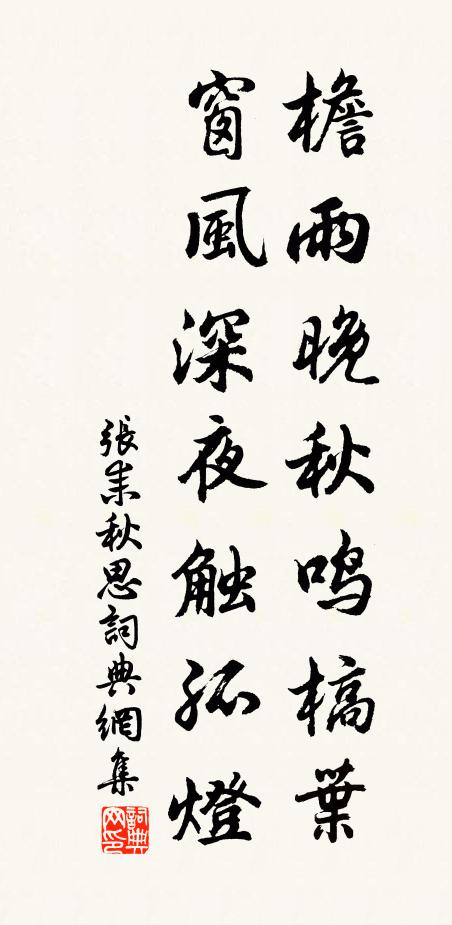 檐雨晚秋鸣槁葉
窗風深夜触孤燈
張耒秋思詞典網集
詞典
网印